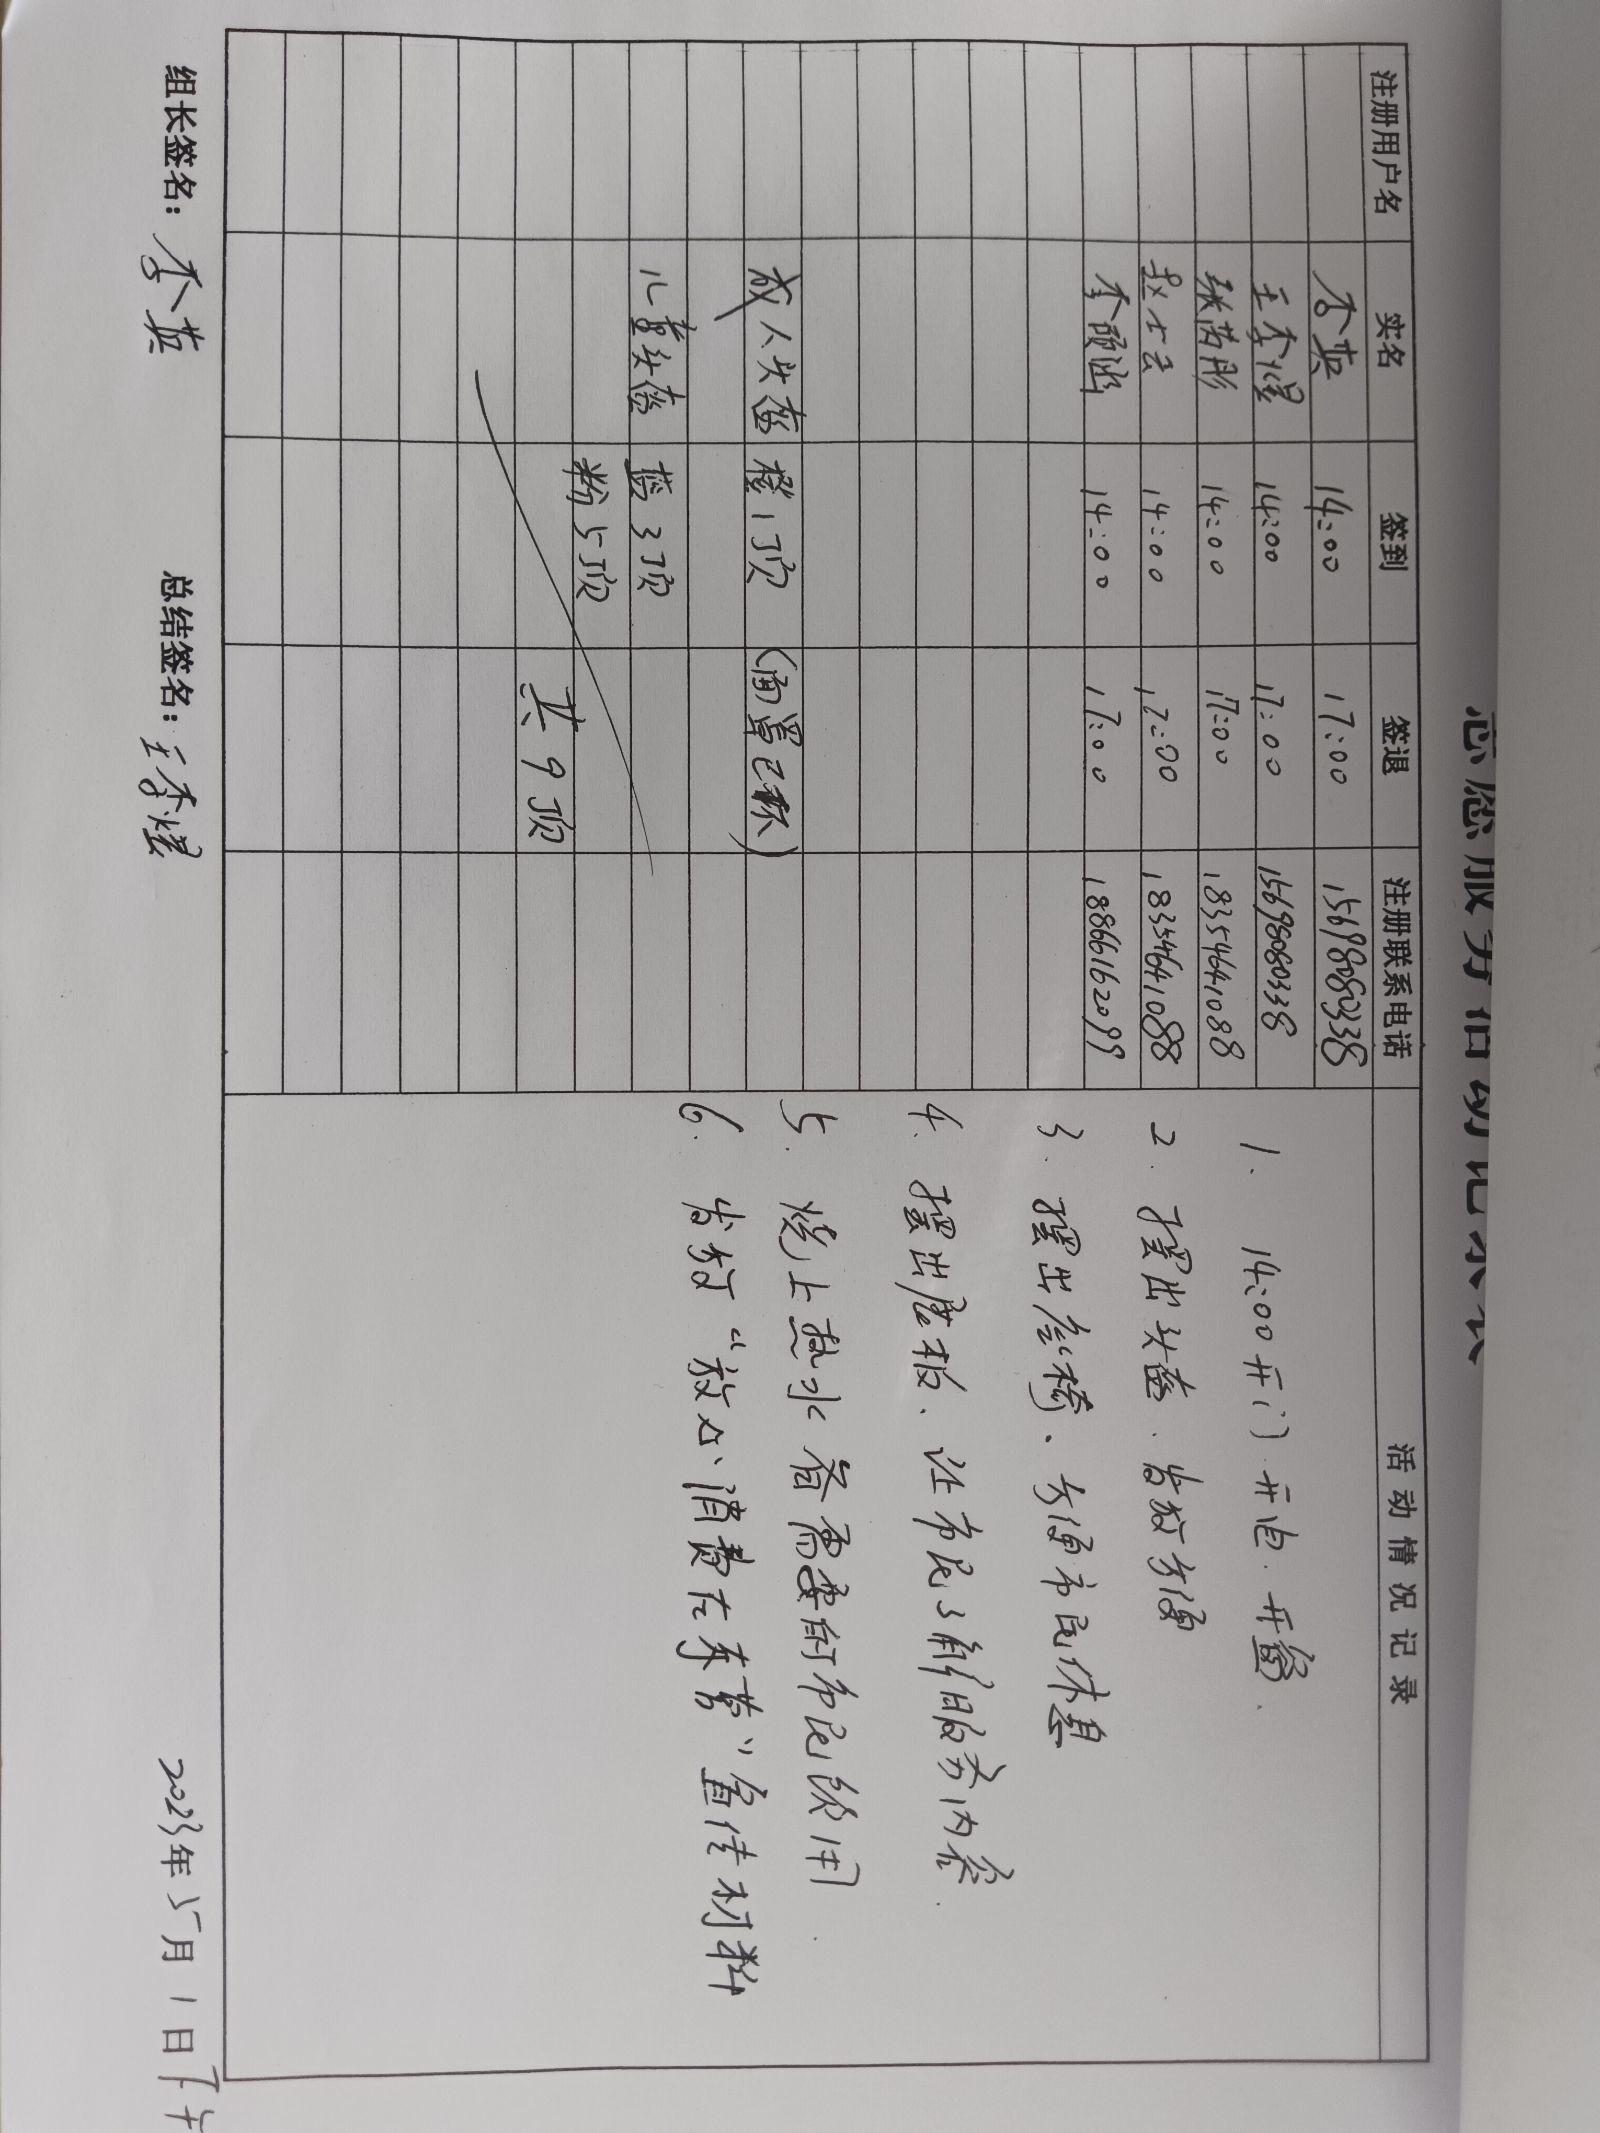 志愿服务活动记录表
注册用户名 实名 签到 签退 注册联系电话 活动情况记录
李英 14:00 17:00 15698080338
王李煜 14:00 17:00 15698080338
张芮彤 14:00 17:00 18354641088
赵士云 14:00 17:00 18354641088
李颐涵 14:00 17:00 18866162099
成人头盔 橙1顶 (面罩已坏)
儿童头盔 蓝3顶
粉5顶
共9顶
1. 14:00开门.开电.开窗.
2. 摆出头盔.发放方便
3. 摆出座椅、方便市民休息
4. 摆出展板、让市民了解服务内容.
5. 烧上热水 备需要的市民饮用.
6. 发放“放心消费在东营”宣传材料
组长签名: 李英 总结签名: 王李煜 2023年5月1日下午